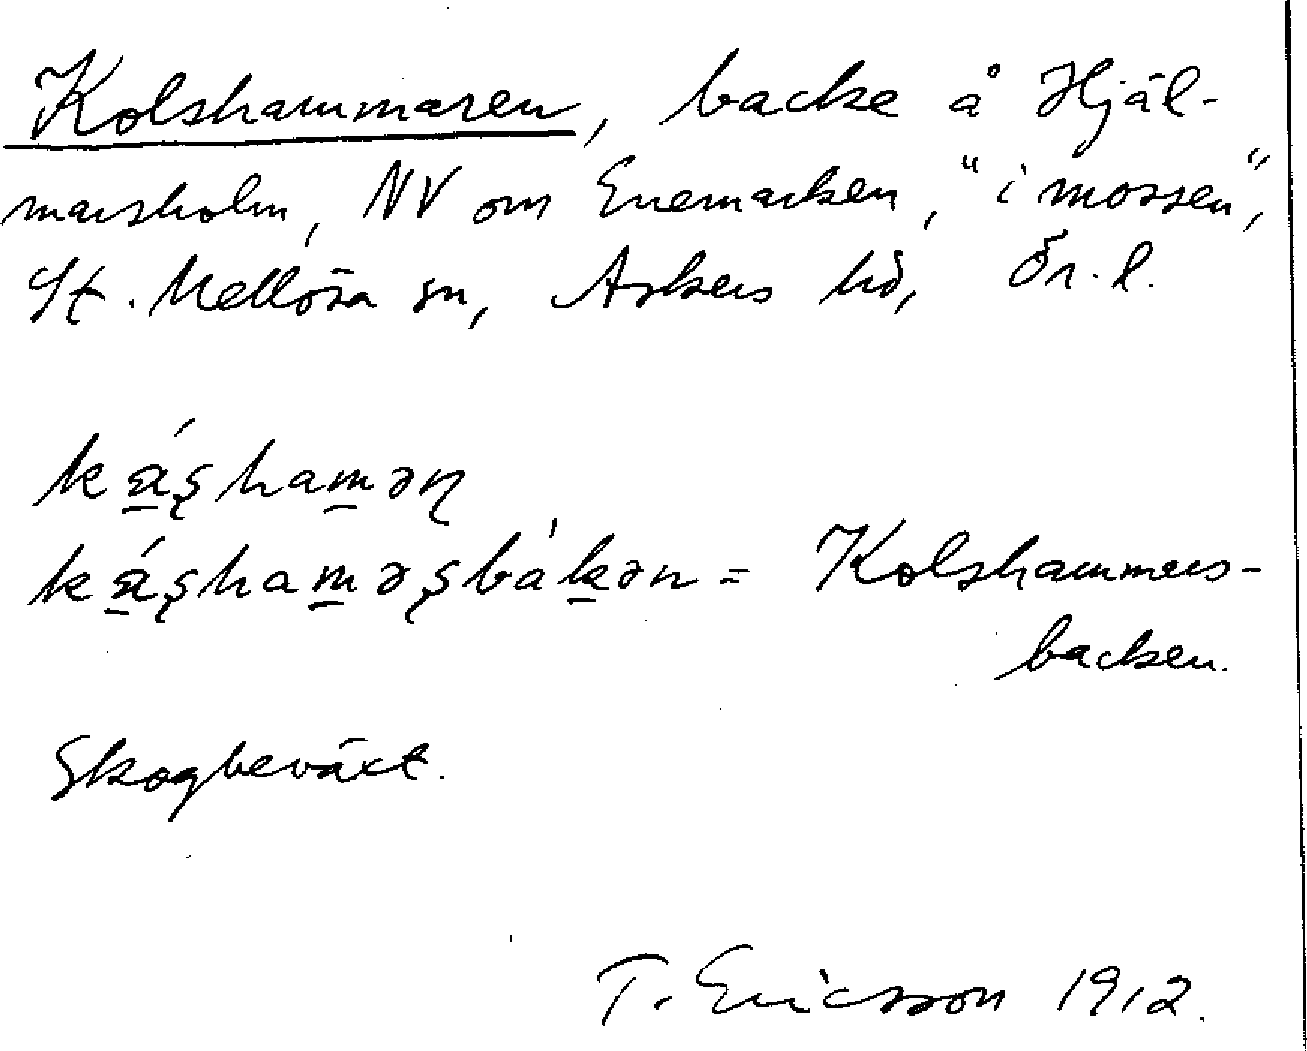 Kolshammaren, backe å Hjäl-
marsholm, NV om Enemarken, "i mossen",
St. Mellösa sn, Askers hd, Ör. l.
Kolshammars-
backen.
Skogbeväxt.
T. Ericsson 1912.